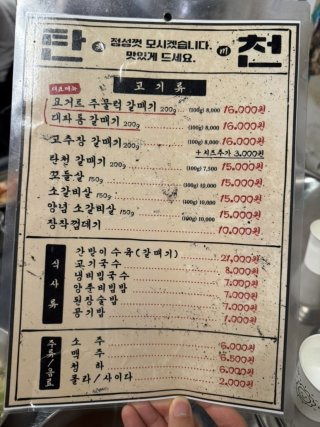 탄 천
정성껏 모시겠습니다.
맛있게 드세요.
고기류
요거트 주물럭 갈매기 200g (100g) 8,000 16,000원
대파통 갈매기 200g (100g) 8,000 16,000원
고추장 갈매기 200g (100g) 8,000 16,000원
+치즈추가 3,000원
탄천 갈매기 200g (100g) 7,500 15,000원
꼬들살 150g (100g) 10,000 15,000원
소갈비살 150g (100g) 10,000 15,000원
양념 소갈비살 150g (100g) 10,000 15,000원
장작껍데기 10,000원
식사류
간받이수육(갈매기) 21,000원
고기국수 8,000원
냉비빔국수 7,000원
양푼비빔밥 7,000원
된장술밥 7,000원
공기밥 1,000원
주류/음료
소주 5,000원
맥주 5,500원
청하 6,000원
콜라/사이다 2,000원